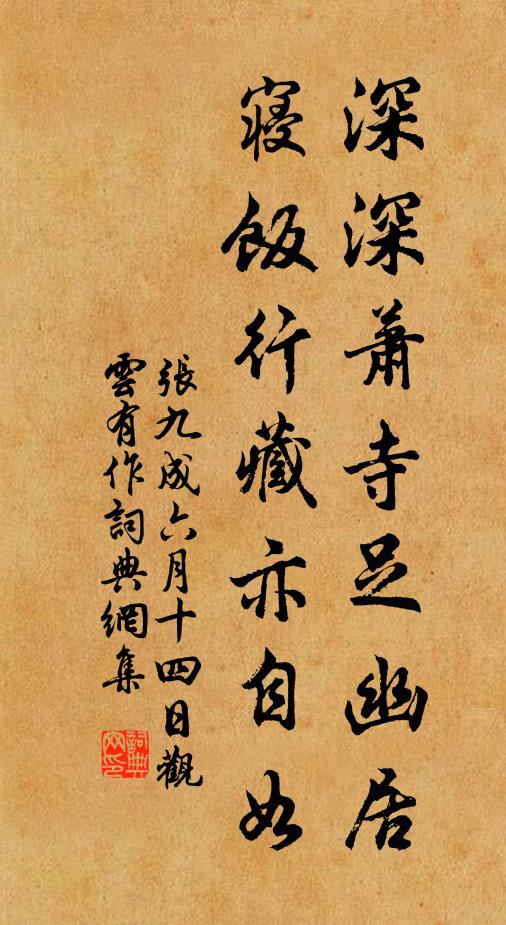 深深蕭寺足幽居
寢飯行藏亦自如
張九成六月十四日觀
雲有作詞典網集
詞典網印